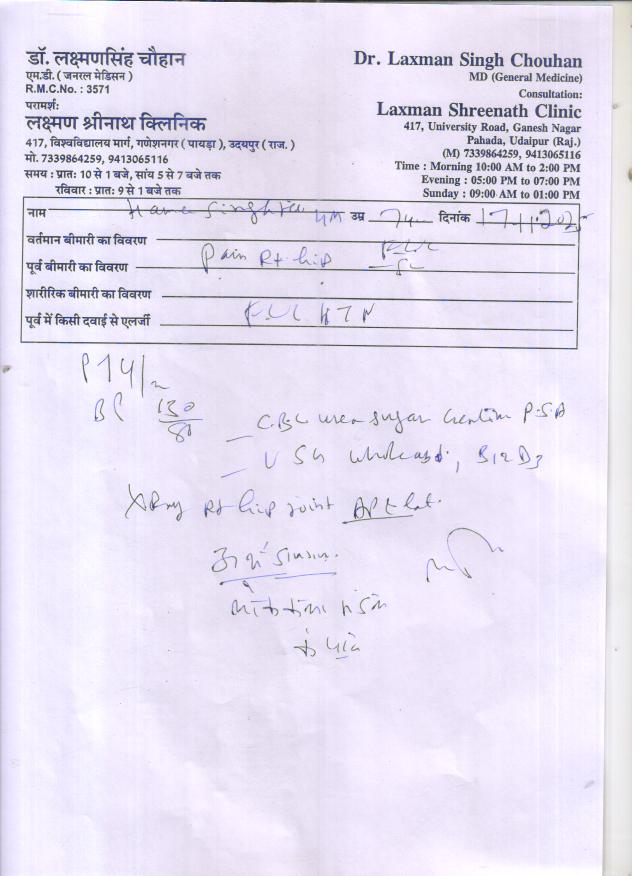 डॉ. लक्ष्मणसिंह चौहान
एम.डी. ( जनरल मेडिसन )
R.M.C.No. : 3571
परामर्श:
लक्ष्मण श्रीनाथ क्लिनिक
417, विश्वविद्यालय मार्ग, गणेशनगर ( पायड़ा ), उदयपुर ( राज. )
मो. 7339864259, 9413065116
समय : प्रात: 10 से 1 बजे, सांय 5 से 7 बजे तक
रविवार : प्रात: 9 से 1 बजे तक
Dr. Laxman Singh Chouhan
MD (General Medicine)
Consultation:
Laxman Shreenath Clinic
417, University Road, Ganesh Nagar
Pahada, Udaipur (Raj.)
(M) 7339864259, 9413065116
Time : Morning 10:00 AM to 2:00 PM
Evening : 05:00 PM to 07:00 PM
Sunday : 09:00 AM to 01:00 PM
नाम उम्र दिनांक
वर्तमान बीमारी का विवरण
पूर्व बीमारी का विवरण Pain Rt hip
शारीरिक बीमारी का विवरण
पूर्व में किसी दवाई से एलर्जी HTN
P 74/m
BP 130/80
CBC urea sugar creatinine P.S.A
USG whole abd, B12 D3
X Ray Rt hip joint AP & lat.